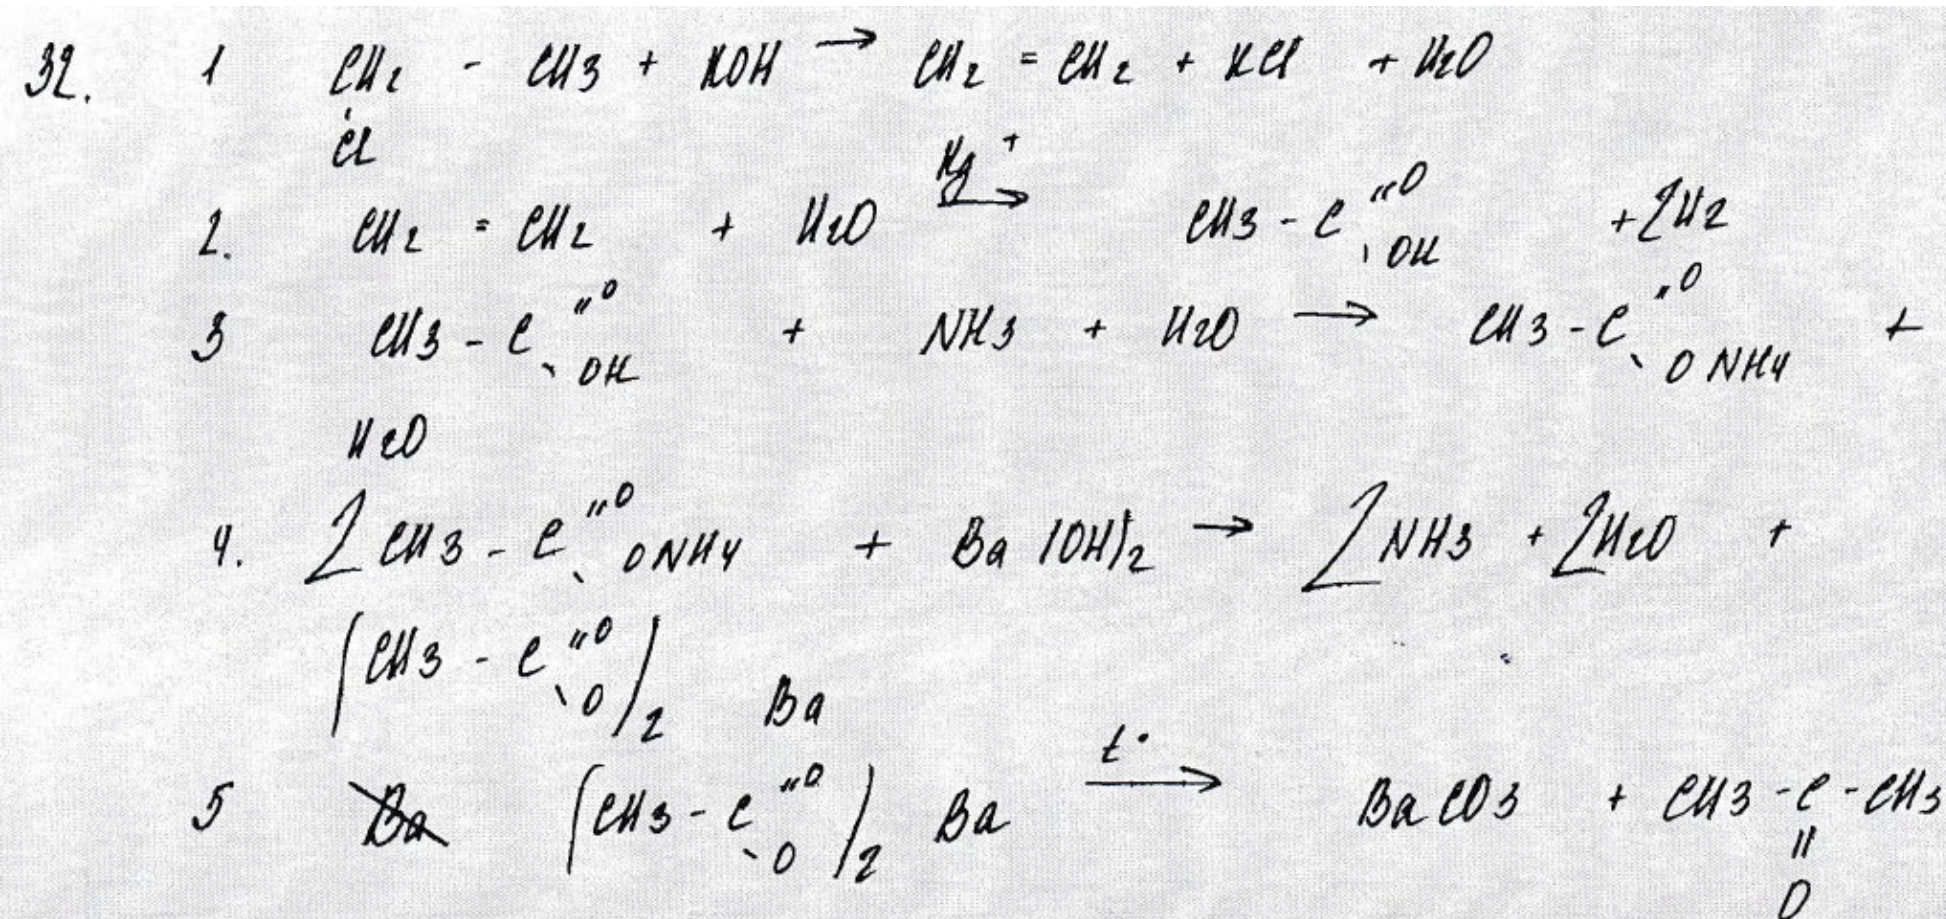 32. 1 CH2 - CH3 + KOH → CH2 = CH2 + KCl + H2O
Cl
Hg +
2. CH2 = CH2 + H2O → CH3 - C =O \ OH + 2H2
3 CH3 - C =O \ OH + NH3 + H2O → CH3 - C =O \ ONH4 +
H2O
4. 2 CH3 - C =O \ ONH4 + Ba(OH)2 → 2 NH3 + 2H2O +
(CH3 - C =O \ O)2 Ba
t°
5 (CH3 - C =O \ O)2 Ba → BaCO3 + CH3 - C - CH3
=
O